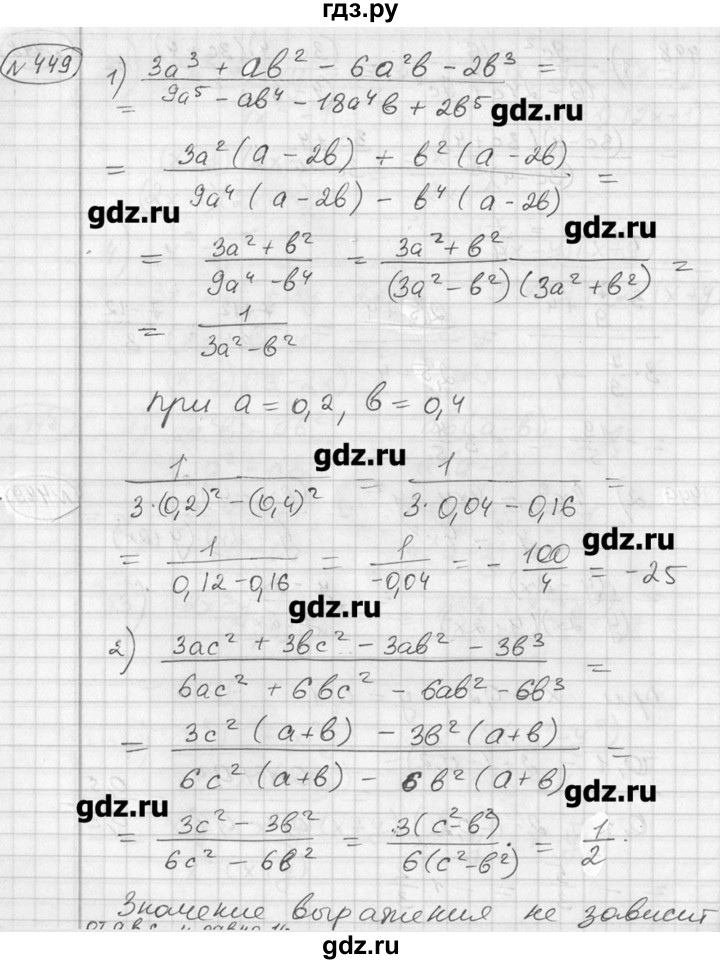 гдз.ру
N 449
1) (3a³ + ab² - 6a²b - 2b³) / (9a⁵ - ab⁴ - 18a⁴b + 2b⁵) =
gdz.ru
= (3a²(a - 2b) + b²(a - 2b)) / (9a⁴(a - 2b) - b⁴(a - 2b)) =
gdz.ru
gdz.ru
= (3a² + b²) / (9a⁴ - b⁴) = (3a² + b²) / ((3a² - b²)(3a² + b²)) =
= 1 / (3a² - b²)
при a = 0,2, b = 0,4
gdz.ru
1 / (3·(0,2)² - (0,4)²) = 1 / (3·0,04 - 0,16) =
gdz.ru
= 1 / (0,12 - 0,16) = 1 / (-0,04) = - 100/4 = -25
gdz.ru
2) (3ac² + 3bc² - 3ab² - 3b³) / (6ac² + 6bc² - 6ab² - 6b³) =
= (3c²(a+b) - 3b²(a+b)) / (6c²(a+b) - 6b²(a+b)) =
gdz.ru
gdz.ru
= (3c² - 3b²) / (6c² - 6b²) = 3(c² - b²) / 6(c² - b²) = 1/2.
Значение выражения не зависит
gdz.ru